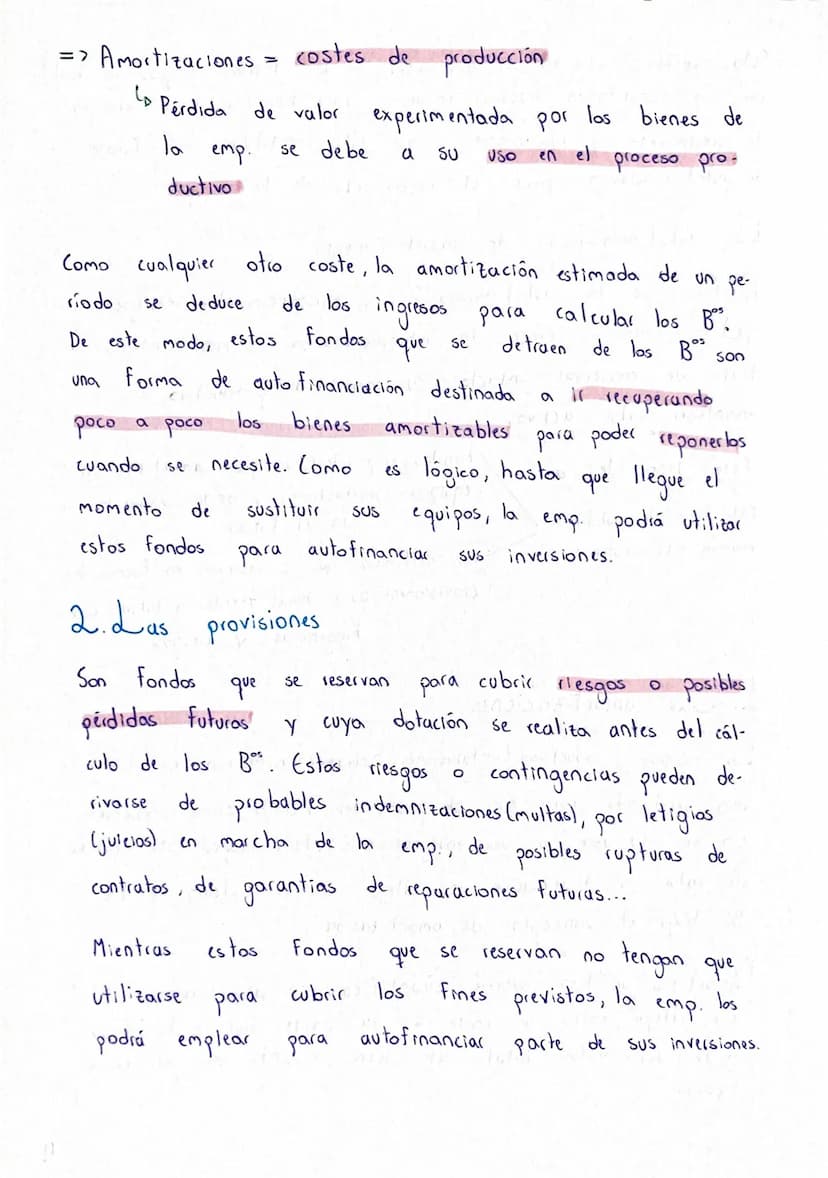 => Amortizaciones = costes de producción
↳ Pérdida de valor experimentada por los bienes de
la emp. se debe a su uso en el proceso pro-
ductivo
Como cualquier otro coste, la amortización estimada de un pe-
ríodo se deduce de los ingresos para calcular los Bºˢ.
De este modo, estos fondos que se detraen de los Bºˢ son
una forma de autofinanciación destinada a ir recuperando
poco a poco los bienes amortizables para poder reponerlos
cuando se necesite. Como es lógico, hasta que llegue el
momento de sustituir sus equipos, la emp. podrá utilizar
estos fondos para autofinanciar sus inversiones.
2. Las provisiones
Son fondos que se reservan para cubrir riesgos o posibles
pérdidas futuras y cuya dotación se realiza antes del cál-
culo de los Bºˢ. Estos riesgos o contingencias pueden de-
rivarse de probables indemnizaciones (multas), por letigios
(juicios) en marcha de la emp., de posibles rupturas de
contratos, de garantias de reparaciones futuras...
Mientras estos fondos que se reservan no tengan que
utilizarse para cubrir los fines previstos, la emp. los
podrá emplear para autofinanciar parte de sus inversiones.